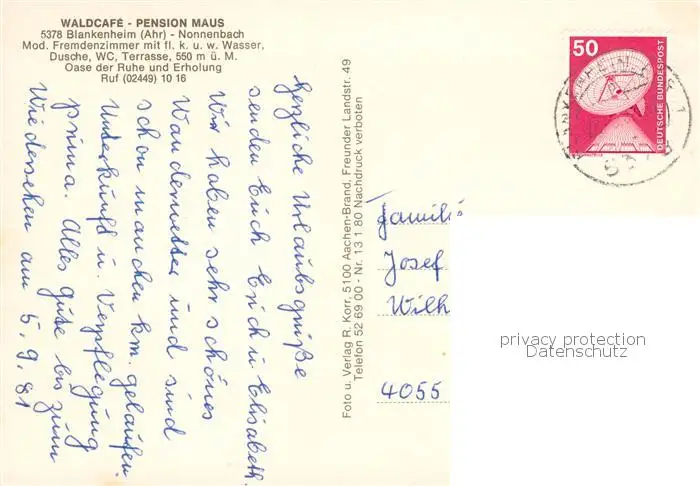 WALDCAFÉ - PENSION MAUS
5378 Blankenheim (Ahr) - Nonnenbach
Mod. Fremdenzimmer mit fl. k. u. w. Wasser,
Dusche, WC, Terrasse, 550 m ü. M.
Oase der Ruhe und Erholung
Ruf (02449) 10 16
Herzliche Urlaubsgrüße
senden Euch Erich u. Elisabeth.
Wir haben sehr schönes
Wanderwetter und sind
schon manchen km. gelaufen.
Unterkunft u. Verpflegung
prima. Alles gute bis zum
Wiedersehen am 5.9.81
Foto u. Verlag R. Korr, 5100 Aachen-Brand, Freunder Landstr. 49
Telefon 52 69 00 - Nr. 13 1 80 Nachdruck verboten
50
DEUTSCHE BUNDESPOST
Famili
Josef
Wilh
4055
privacy protection
Datenschutz